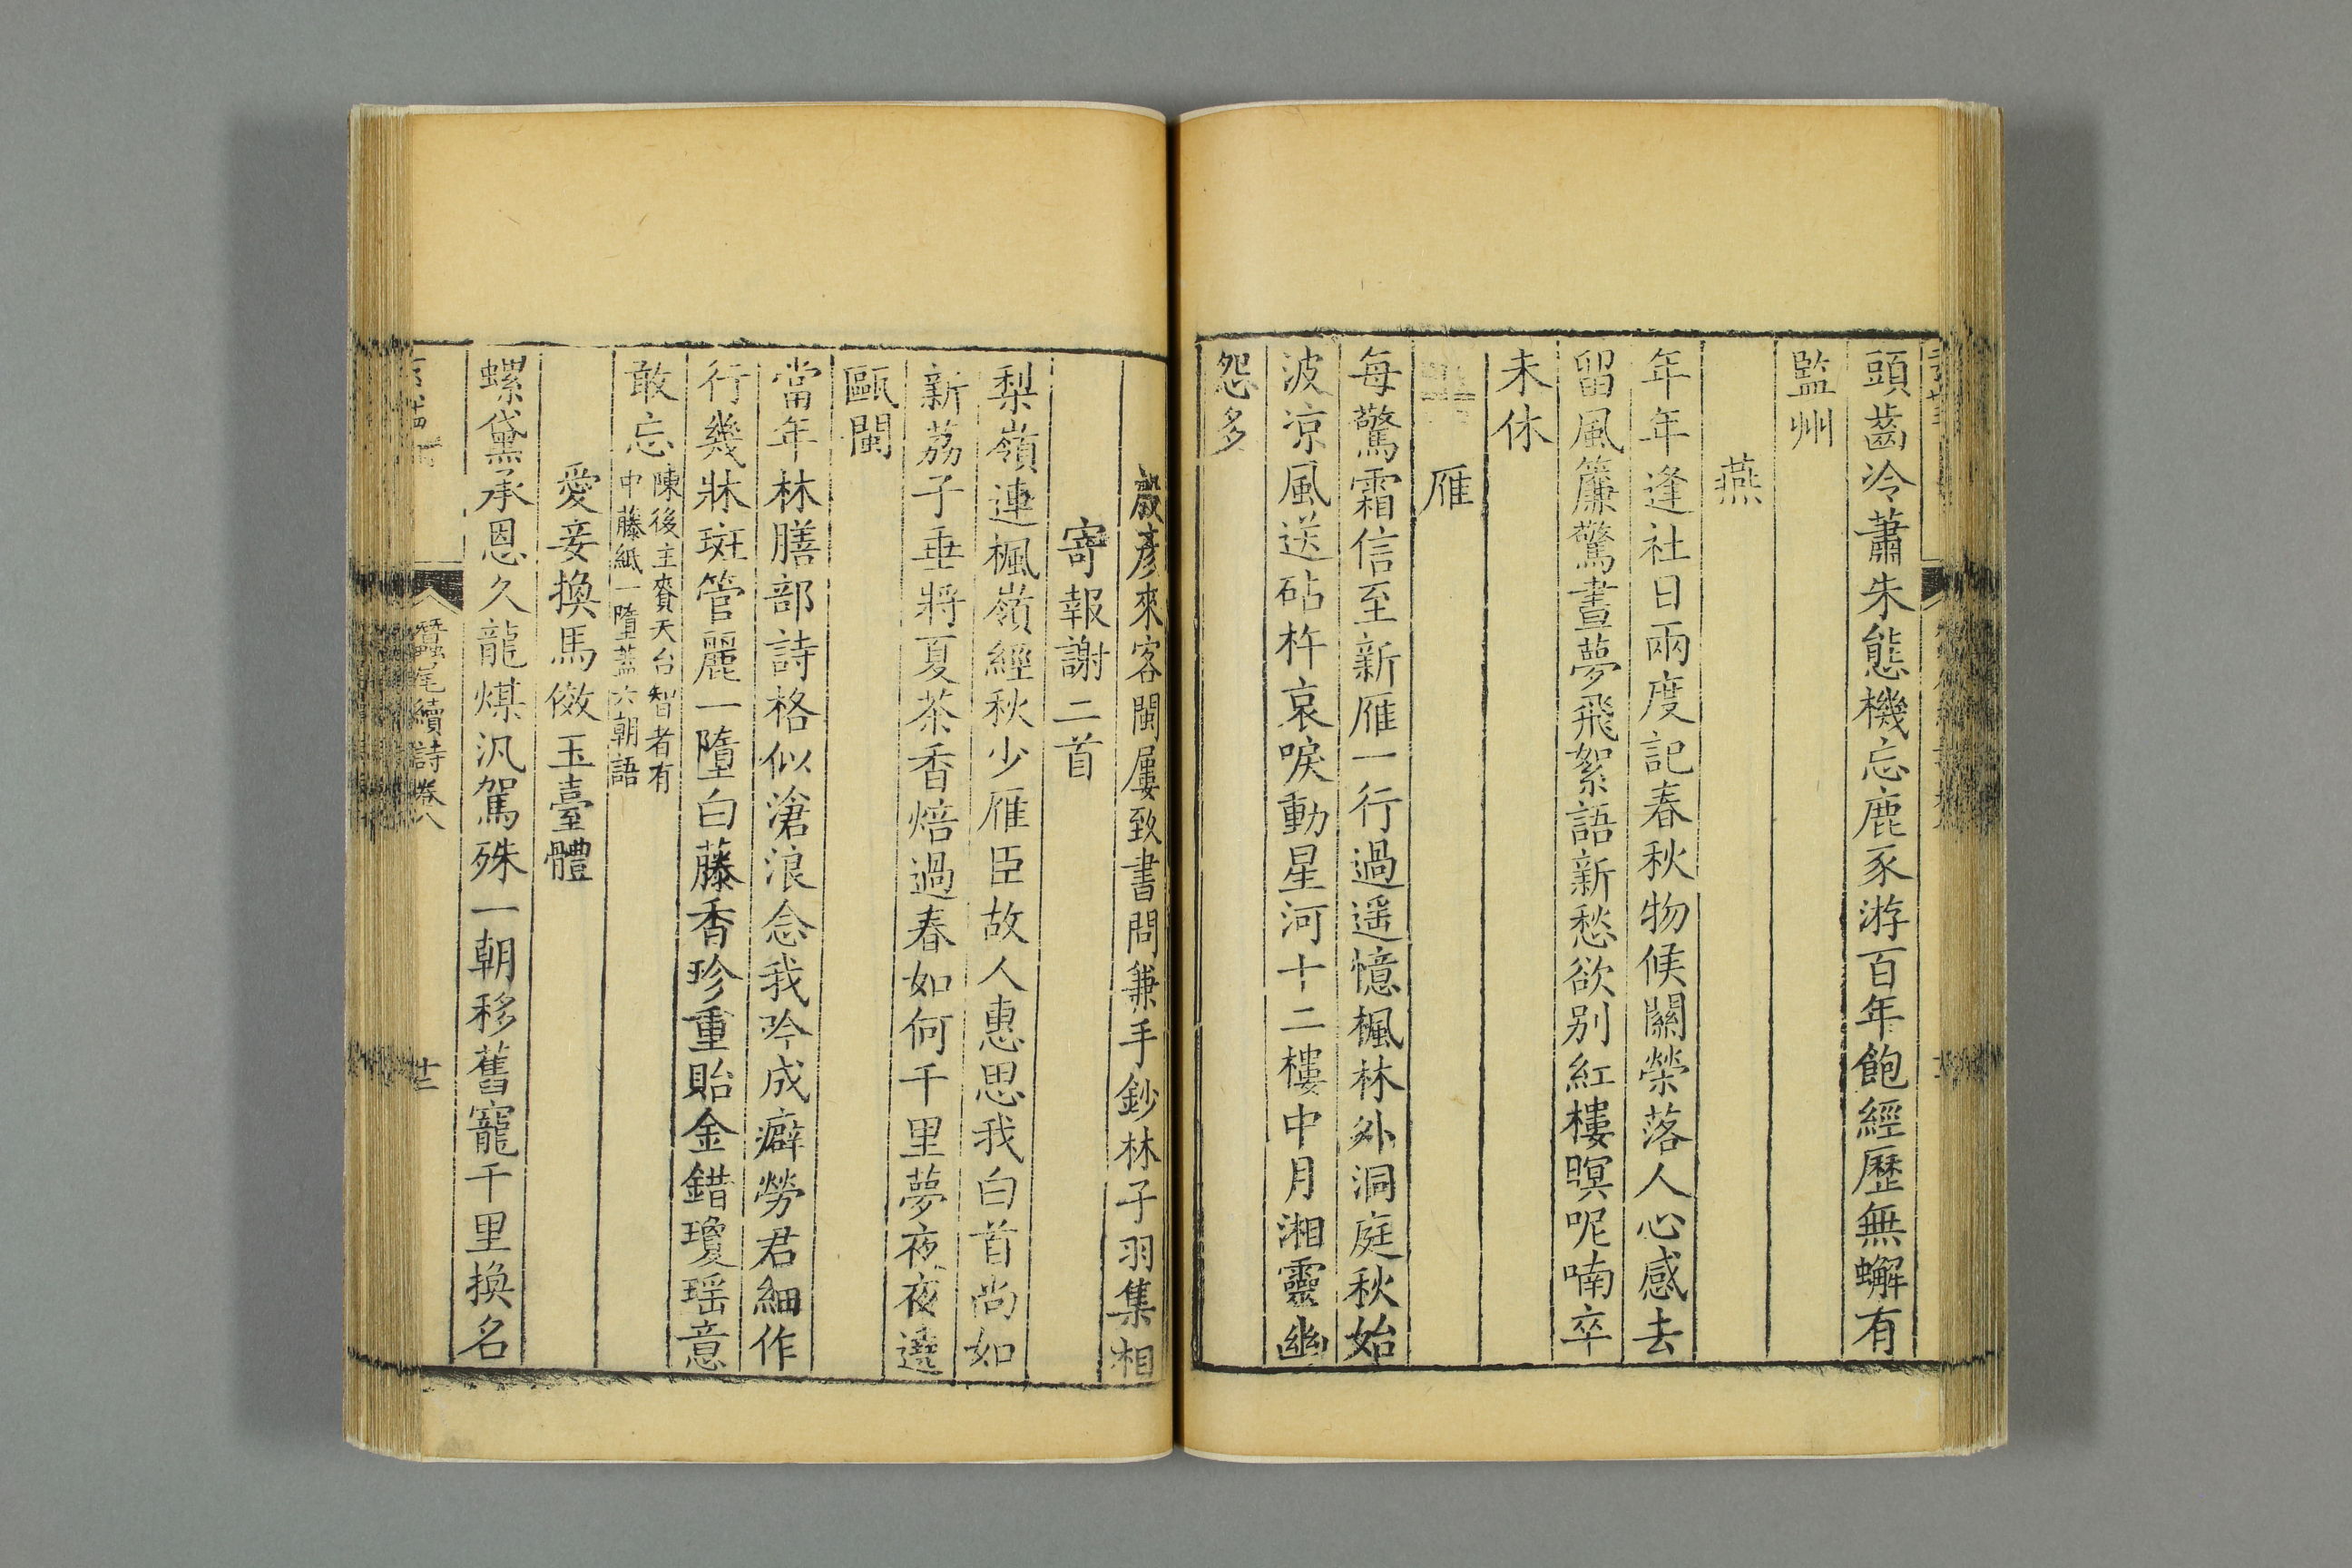 頭齒冷蕭朱態機忘鹿豕游百年飽經歷無蠏有
監州
燕
年年逢社日兩度記春秋物候關榮落人心感去
留風簾驚晝夢飛絮語新愁欲别紅樓暝呢喃卒
未休
雁
每驚霜信至新雁一行過遥憶楓林外洞庭秋始
波凉風送砧杵哀唳動星河十二樓中月湘靈幽
怨多
彥來客閩屢致書問兼手鈔林子羽集相
寄報謝二首
梨嶺連楓嶺經秋少雁臣故人惠思我白首尚如
新荔子垂將夏茶香焙過春如何千里夢夜夜遶
甌閩
當年林膳部詩格似滄浪念我吟成癖勞君細作
行幾牀斑管麗一墮白藤香珍重貽金錯瓊瑶意
敢忘
陳後主賚天台智者有
中藤紙一墮蓋六朝語
愛妾換馬傚玉臺體
螺黛承恩久龍煤汎駕殊一朝移舊寵千里換名
蠶尾續詩卷八
廿二